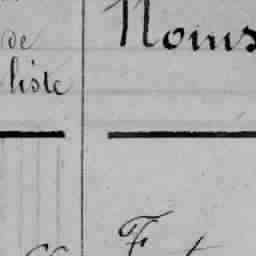 de
liste
Noms
F